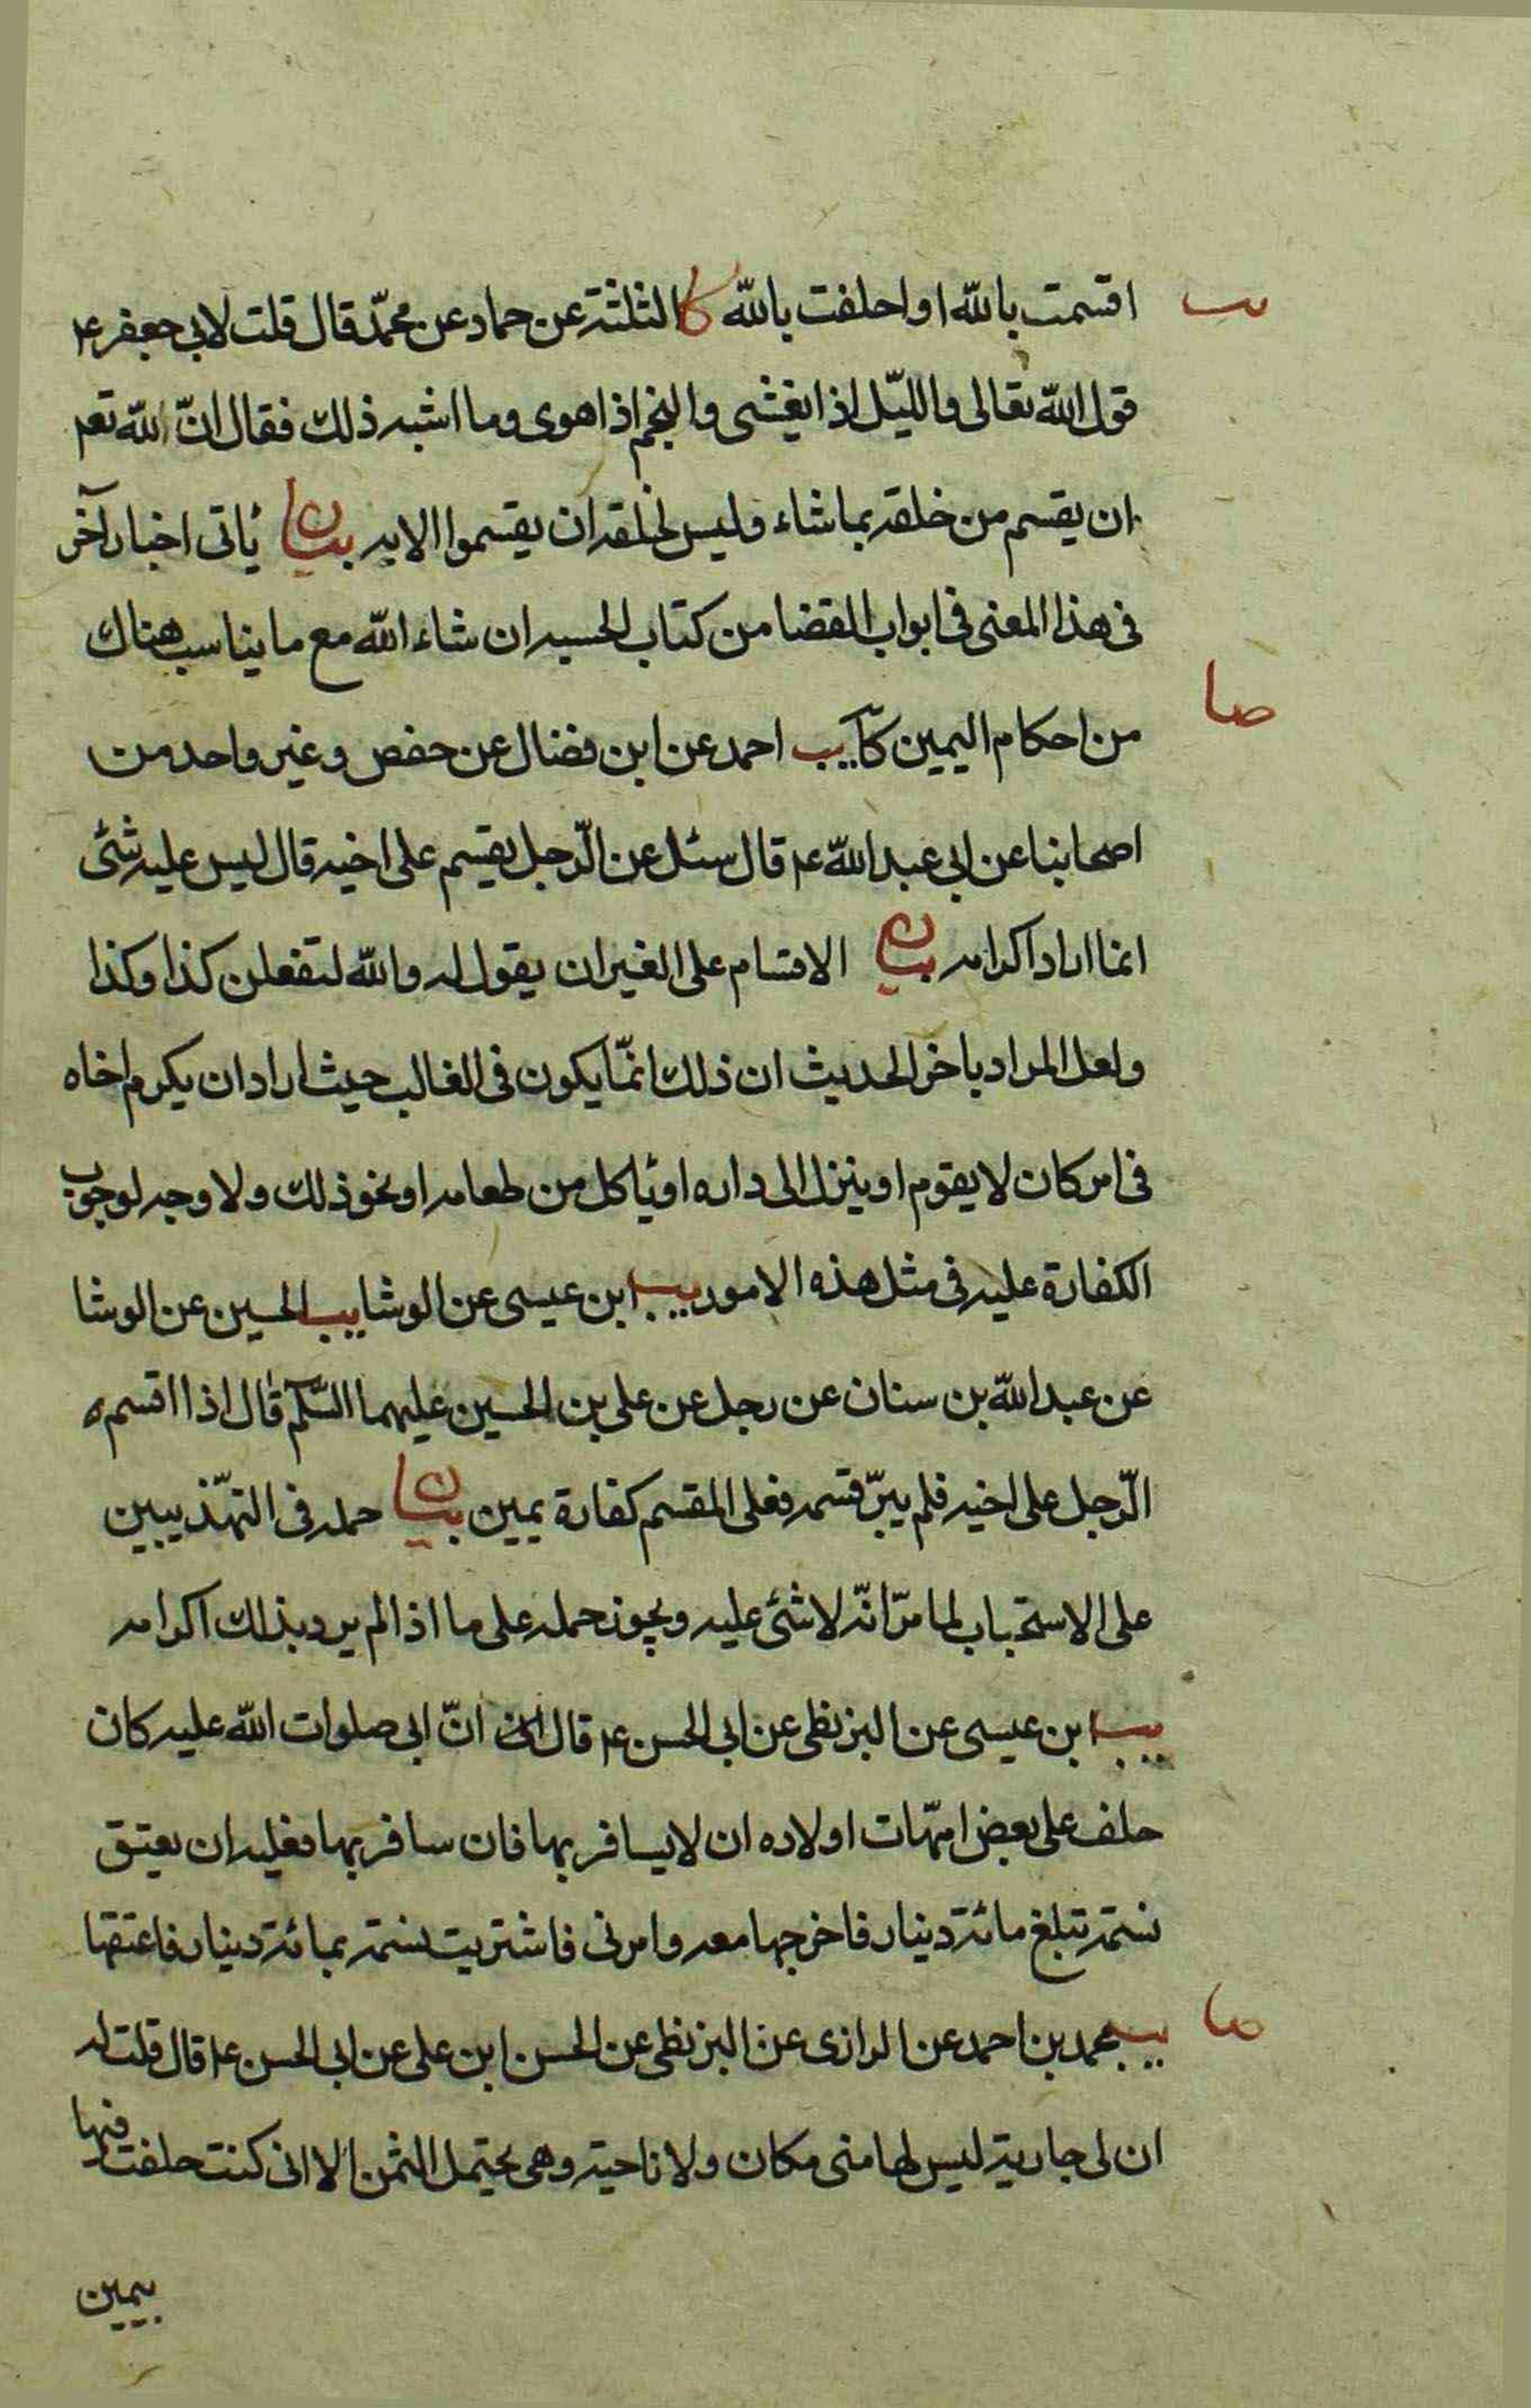 اقسمت بالله او احلفت بالله كا الثلثة عن حماد عن محمّد قال قلت لابى جعفر ع
قول الله تعالى والليّل اذا يغشى والنجم اذا هوى وما اشبه ذلك فقال انّ الله تعم
ان يقسم من خلقه بما شاء وليس لخلقه ان يقسموا الا به بيان يأتى اخبار آخر
فى هذا المعنى فى ابواب القضا من كتاب الحسبه ان شاء الله مع ما يناسب هناك
صا
من احكام اليمين كا يب احمد عن ابن فضال عن حفص وغير واحد من
اصحابنا عن ابى عبد الله ع قال سئل عن الرّجل يقسم على اخيه قال ليس عليه شئ
انما اراد اكرامه بيان الاقسام على الغير ان يقول له والله لتفعلن كذا وكذا
ولعل المراد باخر الحديث ان ذلك انمّا يكون فى الغالب حيث اراد ان يكرم اخاه
فى امر كان لا يقوم او ينزل الى داره او يأكل من طعامه او نحو ذلك ولا وجه لوجوب
الكفارة عليه فى مثل هذه الامور يب ابن عيسى عن الوشا يب الحسين عن الوشا
عن عبد الله بن سنان عن رجل عن على بن الحسين عليهما السّلم قال اذا اقسم
الرّجل على اخيه فلم يبرّ قسمه فعلى المقسم كفارة يمين بيان حمله فى التهّذيبين
على الاستحباب لما مرّ انّه لا شئ عليه ويجوز حمله على ما اذا لم يرد بذلك اكرامه
يب ابن عيسى عن البزنطى عن ابى الحسن ع قال انّ ابى صلوات الله عليه كان
حلف على بعض امّهات اولاده ان لا يسافر بها فان سافر بها فعليه ان يعتق
نسمة تبلغ مائة دينار فاخرجها معه وامرنى فاشتريت نسمة بمائة دينار فاعتقها
صا
يب محمد بن احمد عن الرازى عن البزنطى عن الحسن ابن على عن ابى الحسن ع قال قلت له
ان لى جارية ليس لها منى مكان ولا ناحية وهى يحتمل الثمن الا انى كنت حلفت فيها
بيمين